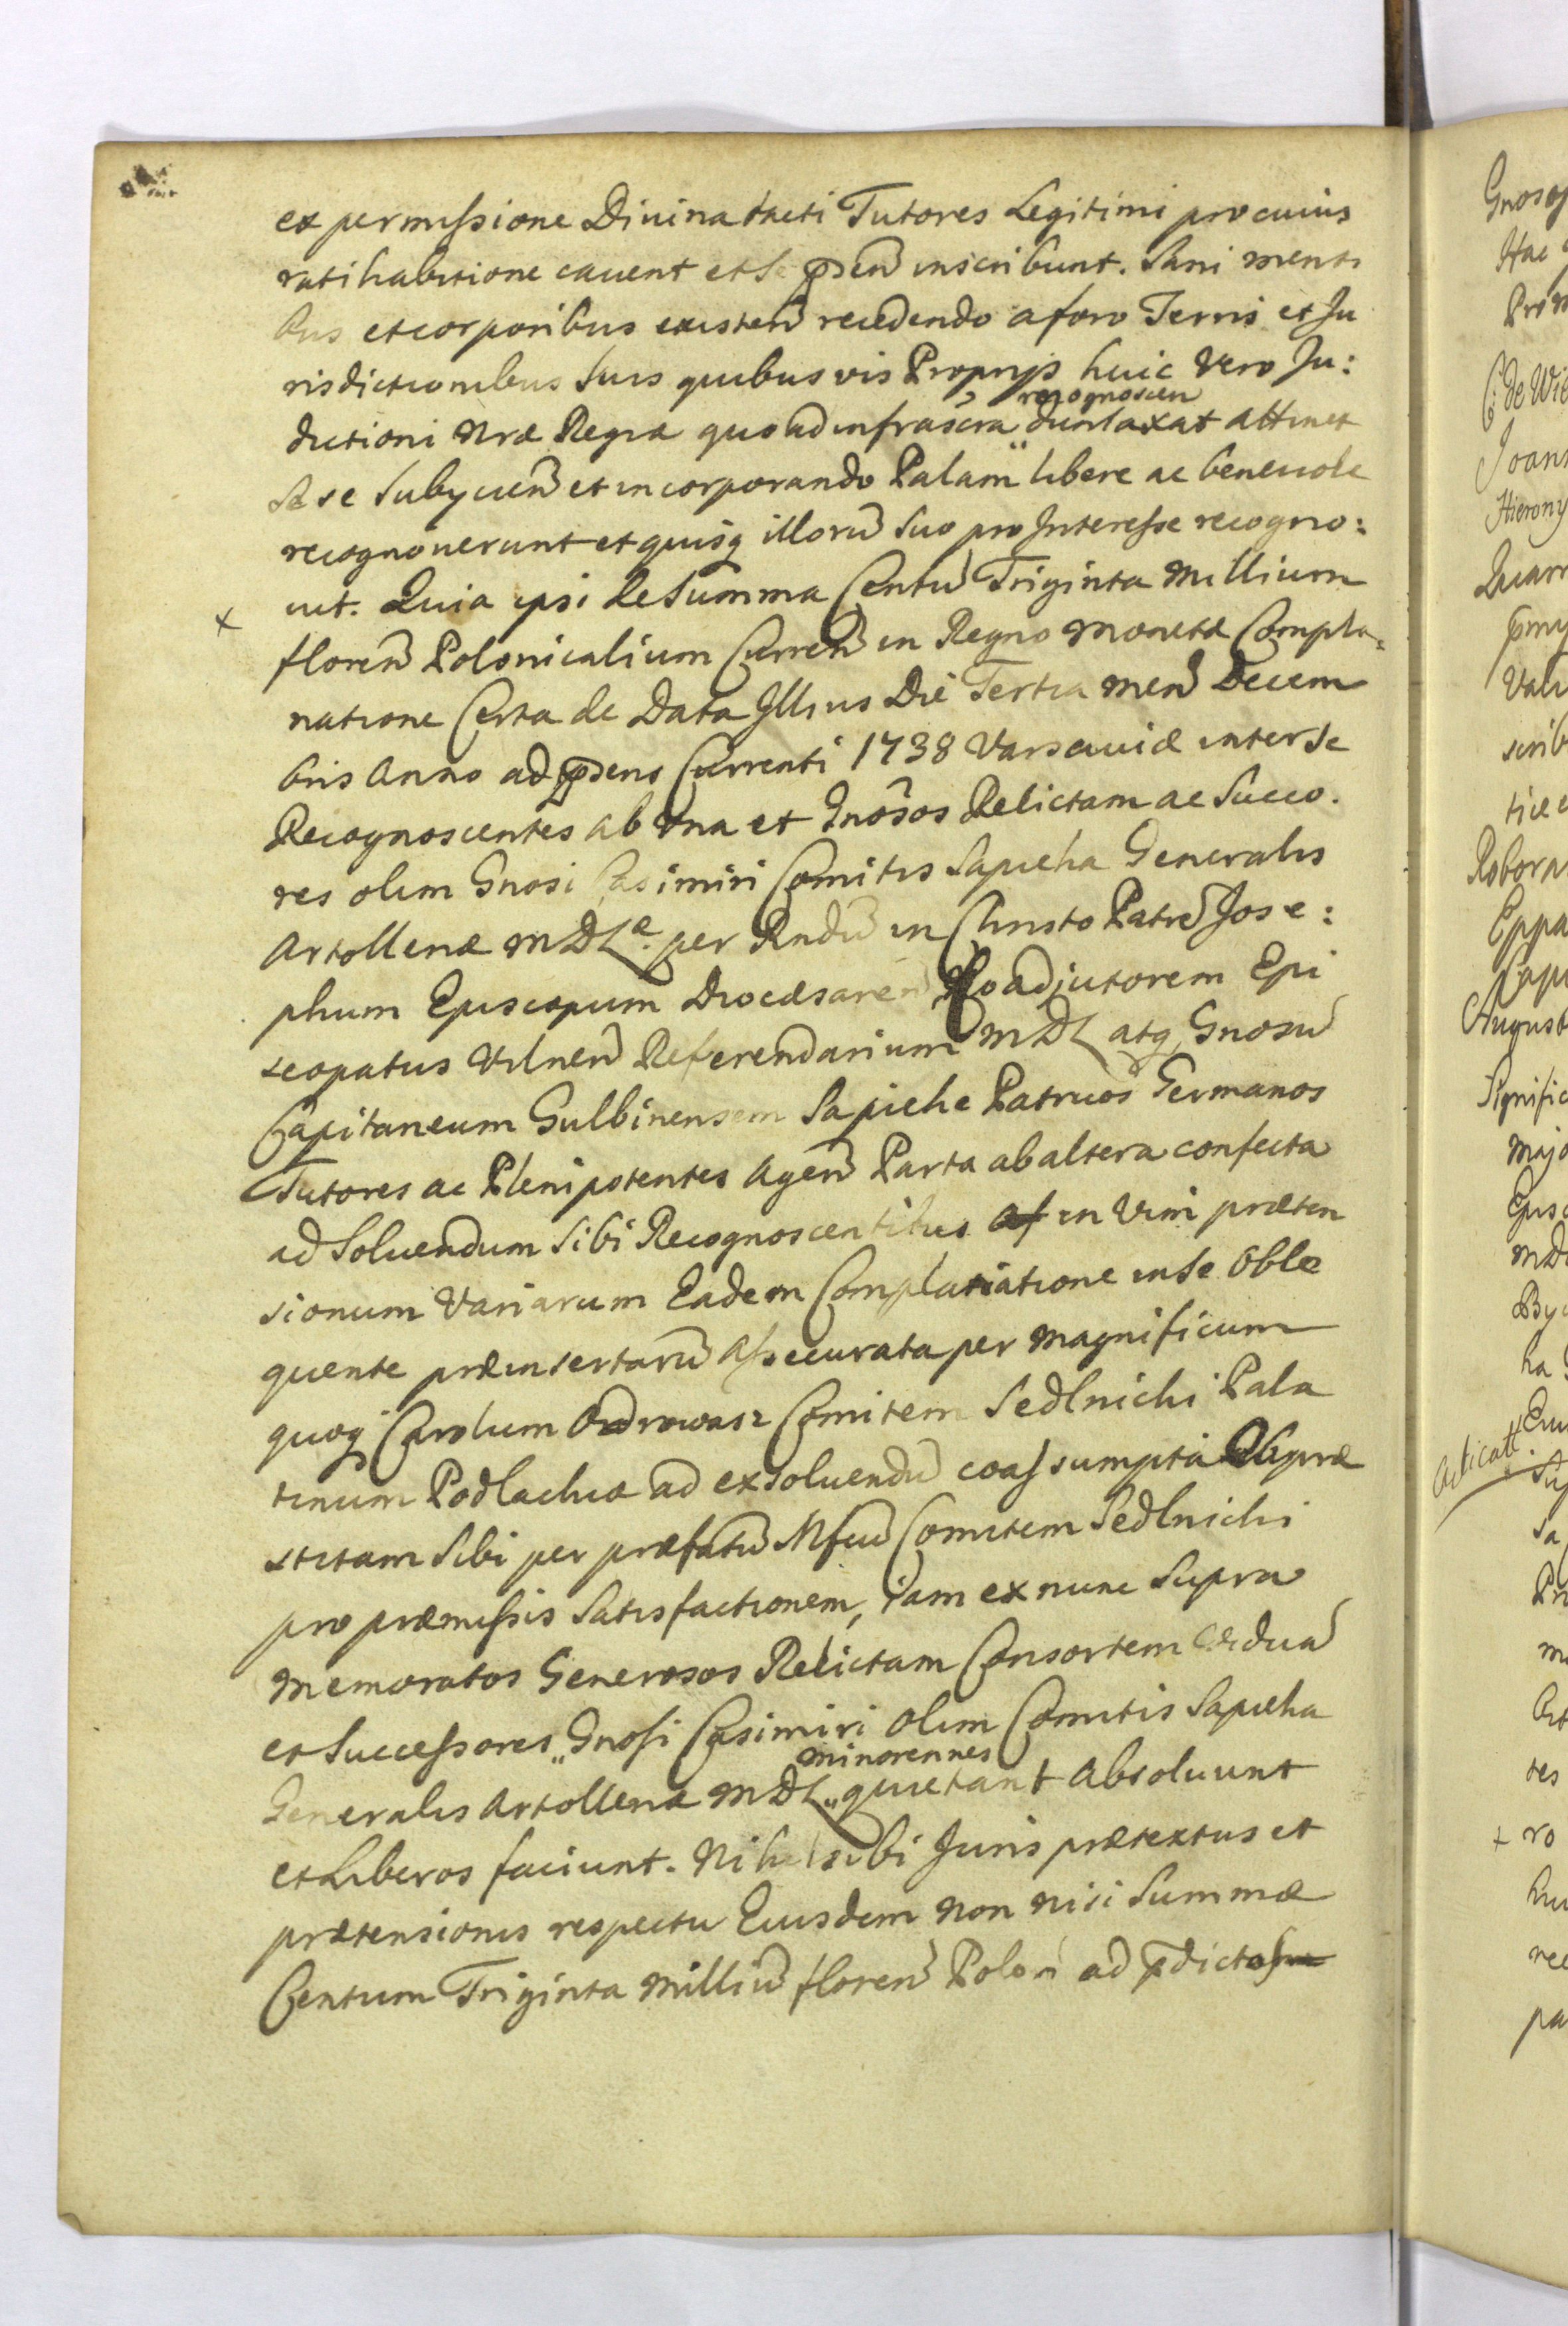 ex permissione Divina facti Tutores Legitimi pro cuius
ratihabitione cauent et se pñsen̄ inscribunt. Sani menti
bus et corporibus existen̄ recedendo a foro Terris et Ju
risdictionibus suis quibusvis Proprijs huic vero Ju:
recognoscen
dictioni Nræ Regiæ quo ad infrascra duntaxat attinet
se se subycien̄ et incorporando Palam libere ac beneuole
recognouerunt et quisq illorū suo pro Interesse recogno:
+ uit. Quia ipsi de Summa Centū Triginta Millium
floren̄ Polonicalium Curren̄ in Regno Monetæ Compla=
natione Certa de Data Illius Die Tertia Men̄ Decem
bris Anno ad præsens Currenti 1738 Varsauiæ inter se
Recognoscentes ab Vna et Gnosos Relictam ac Succo.
res olim Gnosi Casimiri Comitis Sapieha Generalis
Artolleriæ MDLæ. per Rndū in Christo Patrē Jose:
phum Episcopum Diocæsaren̄ Coadjutorem Epi
scopatus Vilnen̄ Referendarium MDL atq Gnosū
Capitaneum Gulbinensem Sapiehe Patruos Germanos
Tutores ac Plenipotentes Agen̄ Parta ab altera confecta
ad Soluendum Sibi Recognoscentibus in Vim præten
sionum Variarum Eadem Complanatione in se Oblo
quente præinsertarū Assecurata per Magnificum
quoq Carolum Odrowasz Comitem Sedlnicki Pala
tinum Podlachiæ ad exsoluendū coassumpta Ob præ
stitam Sibi per præfatū Mfcū Comitem Sedlnicki
pro præmissis Satisfactionem, iam ex nunc Supra
memoratos Generosos Relictam Consortem Viduā
et Successores „ Gnosi Casimiri Olim Comitis Sapieha
minorennes
Generalis Artolleriæ MDL „ quietant Absoluunt
et Liberos faciunt. Nihil sibi Juris prætextus et
prætensionis respectu Eiusdem non nisi Summæ
Centum Triginta Milliū floren̄ Polon̄ ad p̄dictas